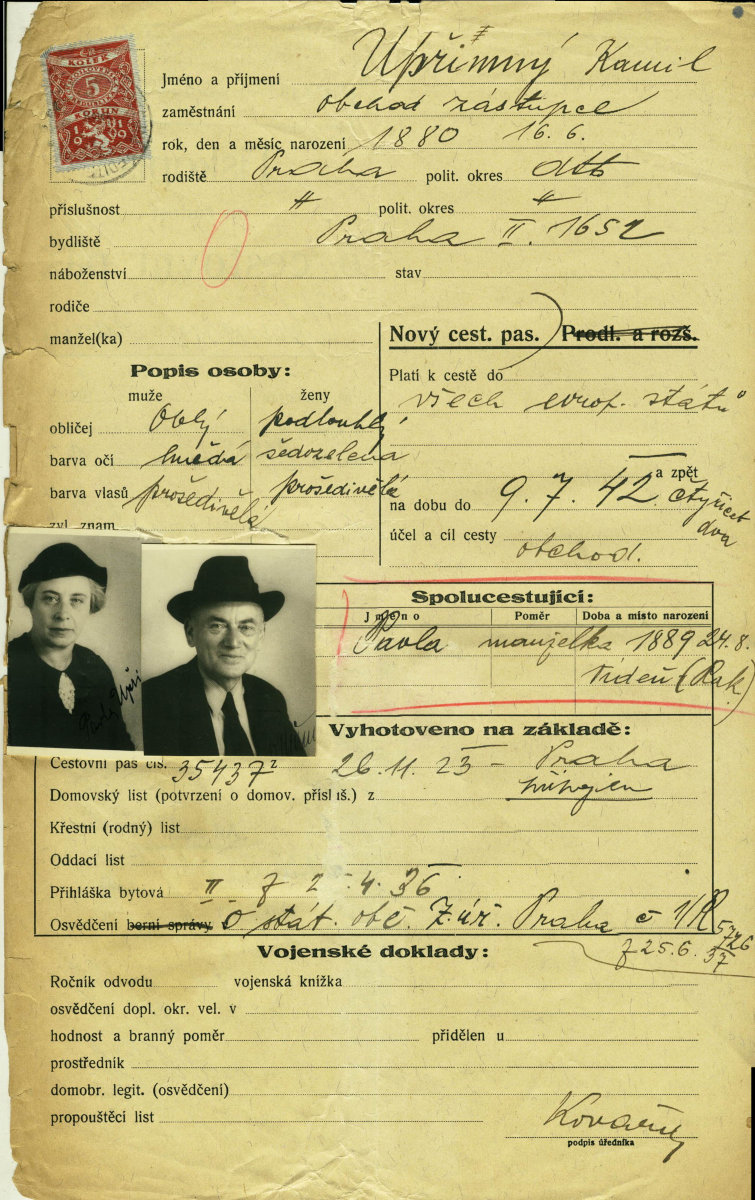 KOLEK
5
KORUN
1919
Jméno a příjmení Upřimný Kamil
zaměstnání obchod zástupce
rok, den a měsíc narození 1880 16. 6.
rodiště Praha polit. okres dtto
příslušnost " polit. okres "
bydliště Praha II. 1652
náboženství stav
rodiče
manžel(ka)
Nový cest. pas. Prodl. a rozš.
Popis osoby:
muže ženy
Platí k cestě do
všech evrop. států
obličej Oblý podlouhlý
barva očí hnědá šedozelená
barva vlasů prošedivělá prošedivělá
zvl. znam.
a zpět
na dobu do 9. 7. 42 čtyřicet dva
účel a cíl cesty
obchod.
Spolucestující:
Jméno Poměr Doba a místo narození
Pavla manželka 1889 24. 8.
Vídeň (Rak.)
Vyhotoveno na základě:
Cestovní pas čís. 35437 26. 11. 23 – Praha
Domovský list (potvrzení o domov. přísluš.) z
Křestní (rodný) list
Oddací list
Přihláška bytová II z 2. 4. 36
Osvědčení berní správy o stát. obč. Z. úř. Praha č 1/R 5726
z 25. 6. 37
Vojenské doklady:
Ročník odvodu vojenská knížka
osvědčení dopl. okr. vel. v
hodnost a branný poměr přidělen u
prostředník
domobr. legit. (osvědčení)
propouštěcí list
podpis úředníka